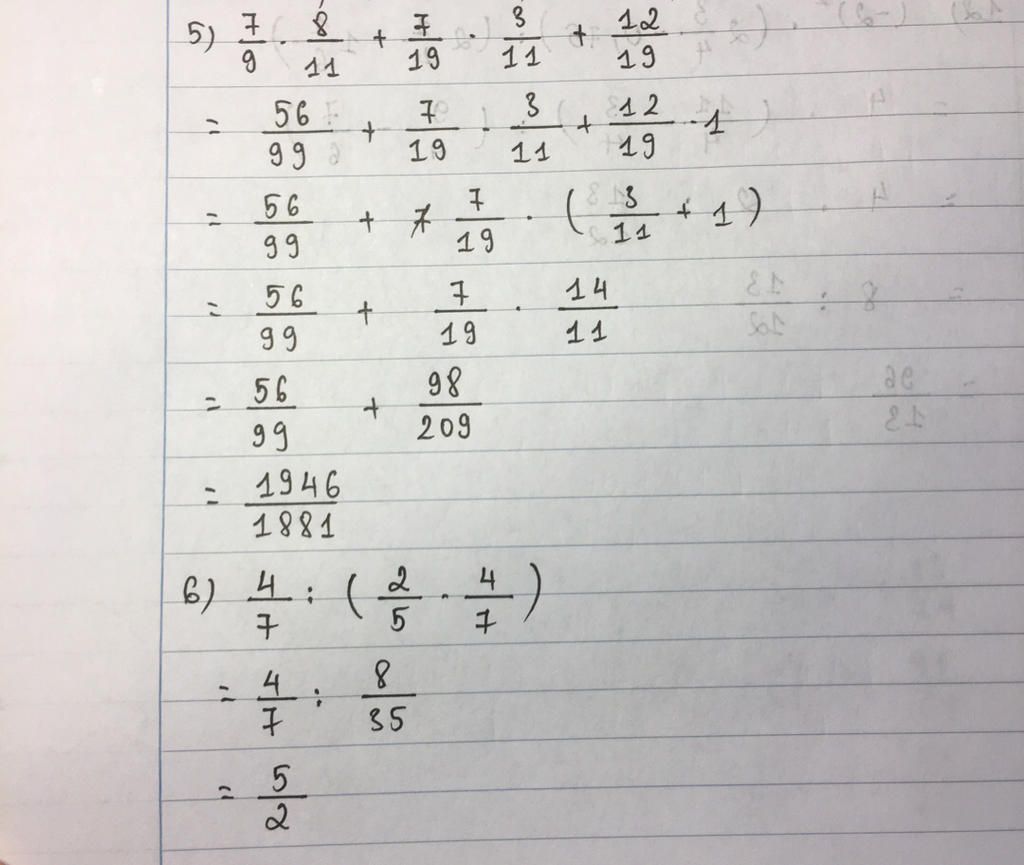 5) 7/9 · 8/11 + 7/19 · 3/11 + 12/19
= 56/99 + 7/19 · 3/11 + 12/19 · 1
= 56/99 + 7/19 · (3/11 + 1)
= 56/99 + 7/19 · 14/11
= 56/99 + 98/209
= 1946/1881
6) 4/7 : (2/5 · 4/7)
= 4/7 : 8/35
= 5/2